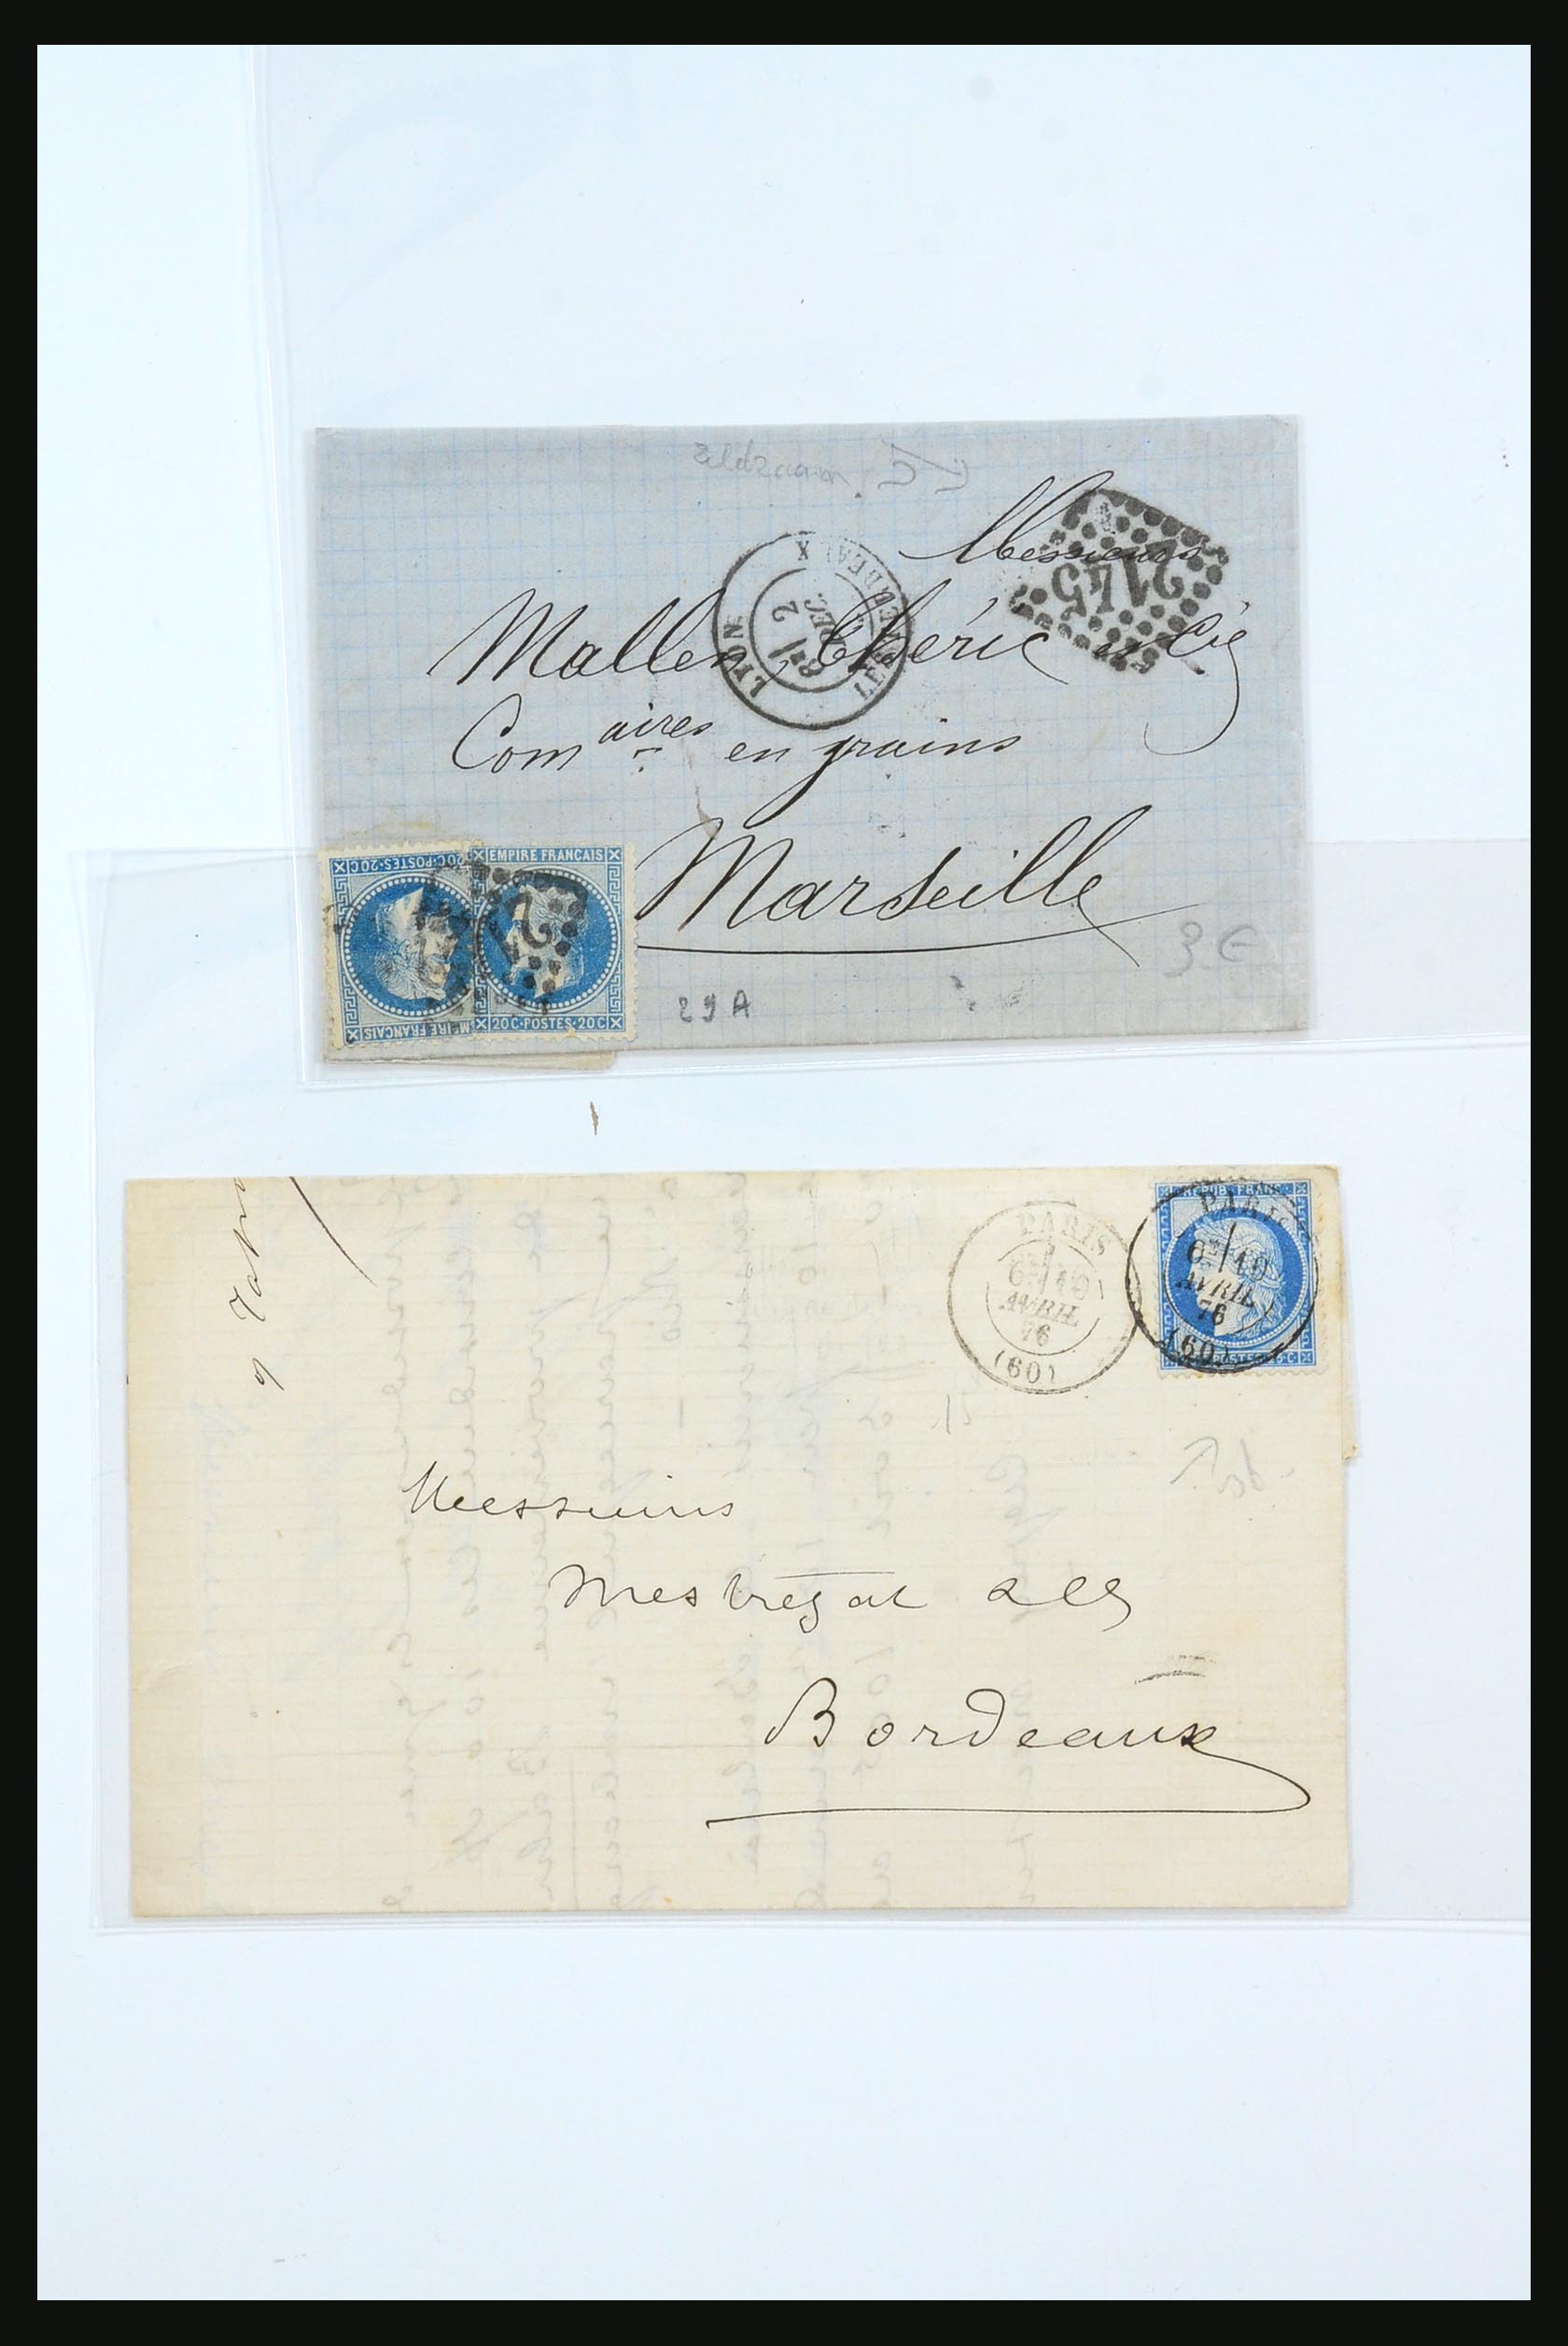 zeldzaam. TC
Messieurs
2145
LYON
LES TERREAUX
2
DEC.
Mallen, Chéric et Cie
Comaires en grains
Marseille
3 E
20C·POSTES·20C
EMPIRE FRANCAIS
EMPIRE FRANCAIS
20C·POSTES·20C
29A
PARIS
6E 19
AVRIL
76
(60)
REPUB. FRANC.
PARIS
6E 19
AVRIL
76
(60)
POSTES
Messieurs
Mestrezat & Cie
Bordeaux